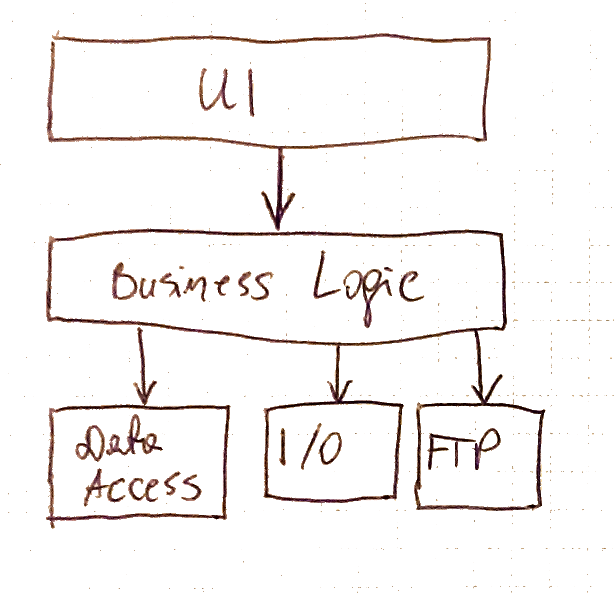 UI
Business Logic
Data
Access
I/O
FTP